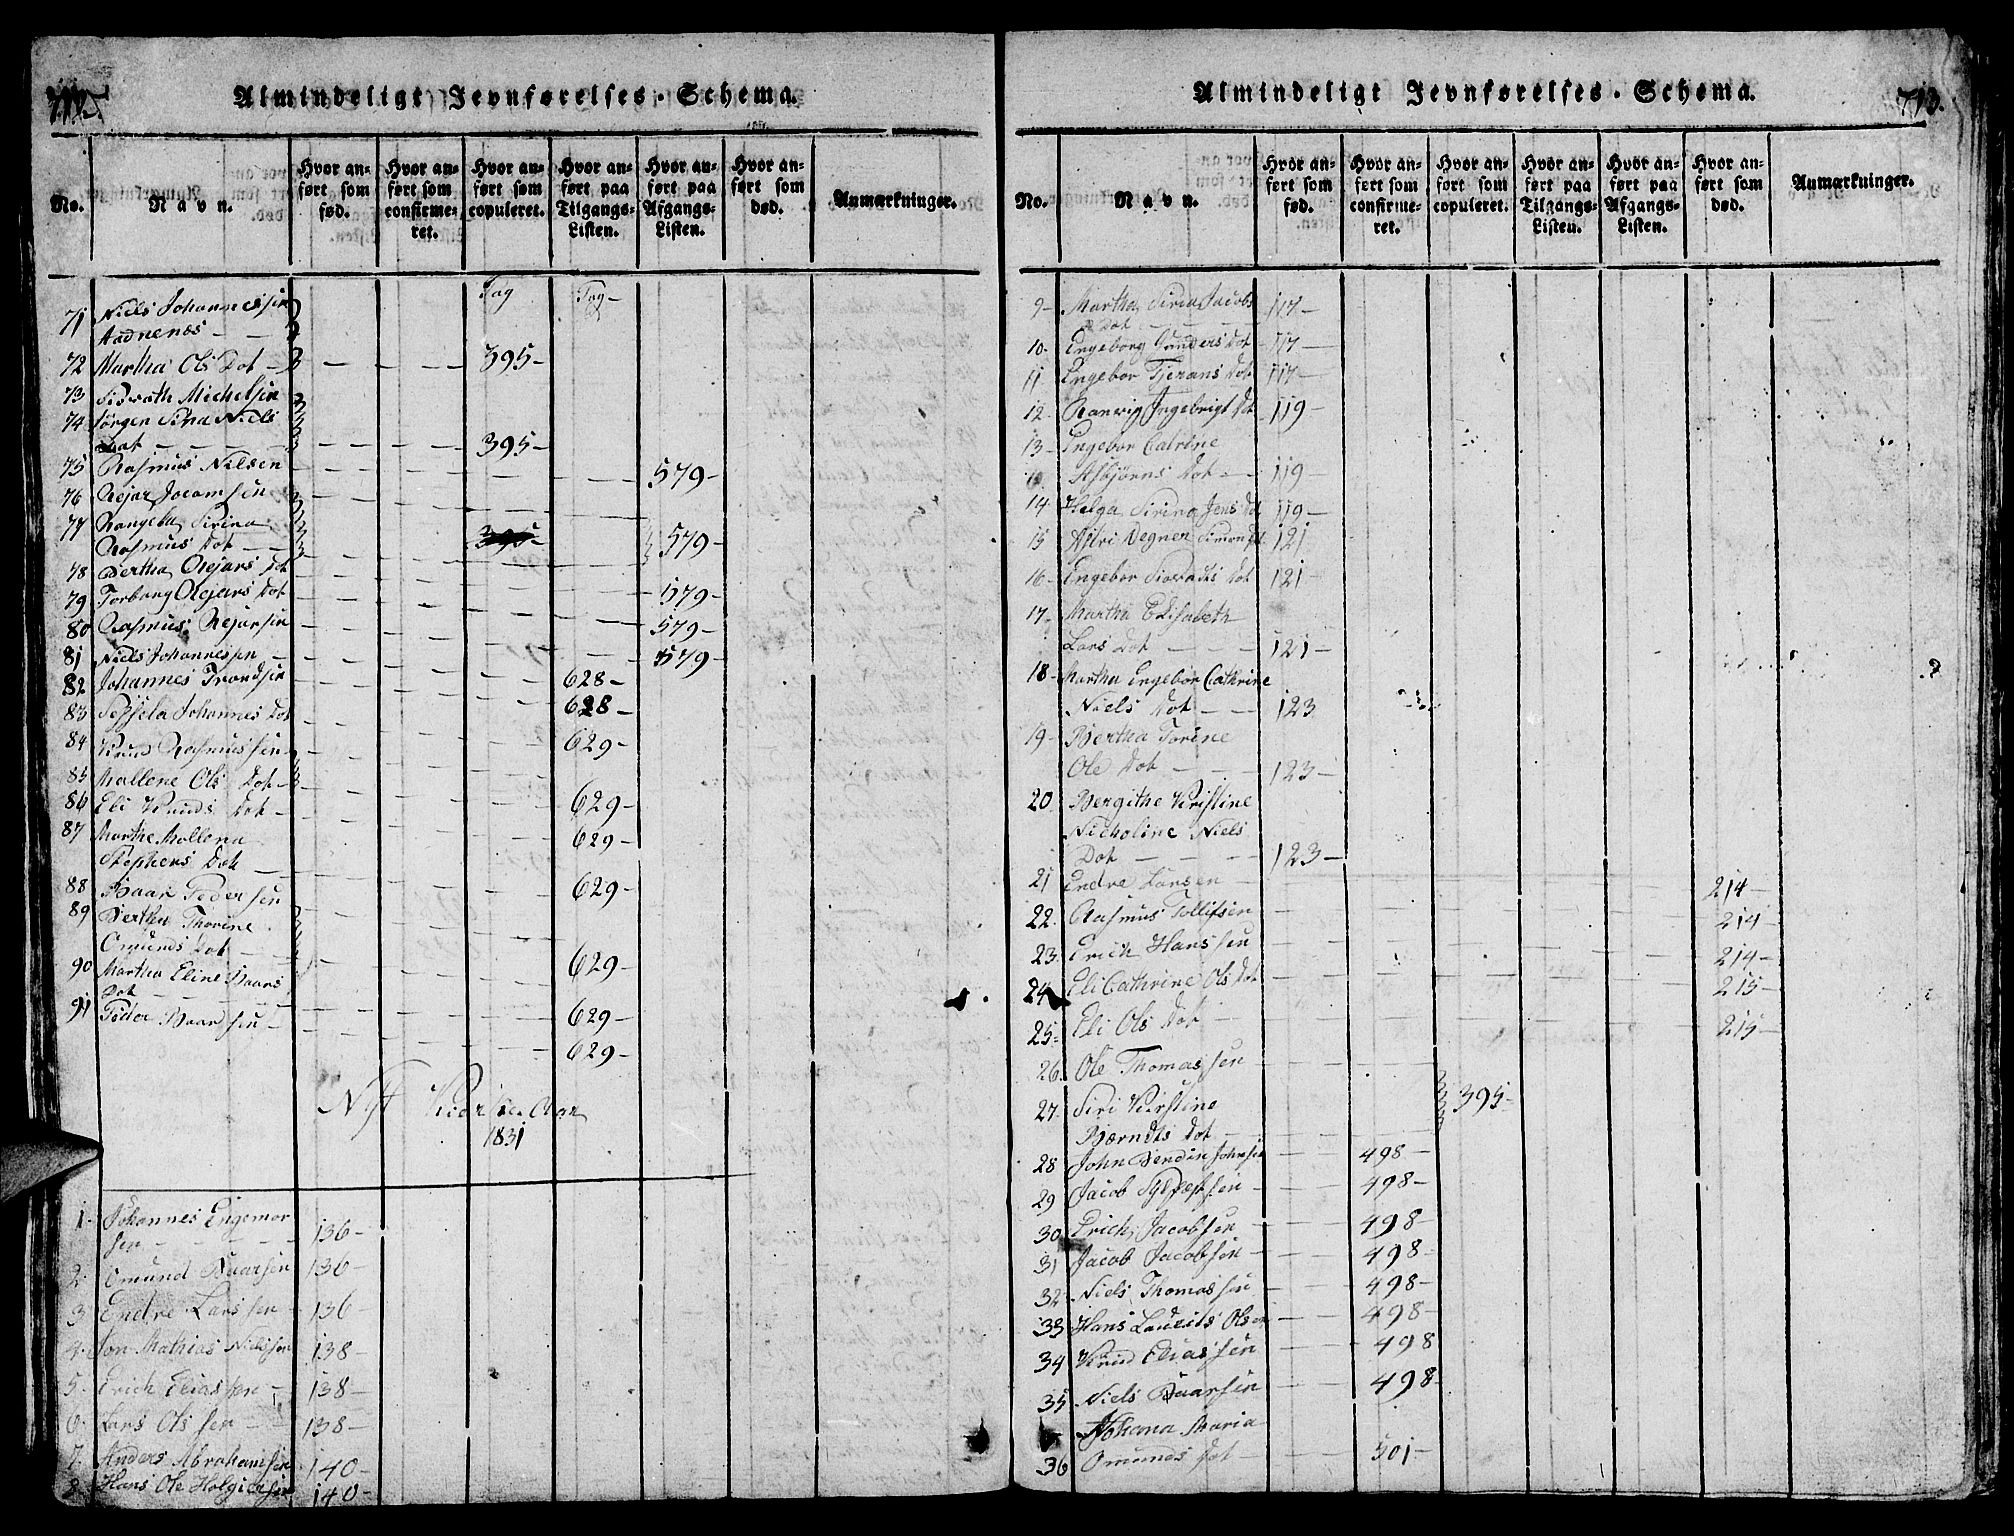 Almindeligt Jevnførelses-Schema.
No. Navn. Hvor anført som fød. Hvor anført som confirmeret. Hvor anført som copuleret. Hvor anført paa Tilgangs-Listen. Hvor anført paa Afgangs-Listen. Hvor anført som død. Anmærkninger.
Pag Pag
71 Niels Johannessen
Aadnenæs
72 Martha Ols Dot 395
73 Sivrath Michelsen
74 Jørgen Sina Niels
Dot 395
75 Rasmus Nilsen 579
76 Rejar Jocomsen
77 Rangela Sirina
Rasmus Dot 395 579
78 Bertha Rejars Dot 579
79 Torborg Rejars Dot
80 Rasmus Rejarsen 579
81 Niels Johannessen 579
82 Johannes Trondsen 628
83 Johannes Dot 628
84 Knud Rasmussen 629
85 Mallene Ols Dot
86 Eli Knuds Dot 629
87 Marthe Mollena 629
Stephens Dot
88 Baar Pedersen 629
89 Bertha Thorine
Omunds Dot
90 Martha Eline Baars 629
Dot
91 Peder Baarsen 629
629
Nyt Kirke Aar
1831
1 Johannes Engemor
sen 136
2 Omund Baarsen 136
3 Endre Larssen 136
4 Jon Mathias Nielssen 138
5 Erich Eliassen 138
6 Lars Olssen 138
7 Anders Abrahamsen 140
8 Hans Ole Holgiersen 140
Almindeligt Jevnførelses-Schema. 713.
No. Navn. Hvor anført som fød. Hvor anført som confirmeret. Hvor anført som copuleret. Hvor anført paa Tilgangs-Listen. Hvor anført paa Afgangs-Listen. Hvor anført som død. Anmærkninger.
9 Martha Siria Jacobs 117
Dot
10 Engeborg Gunders Dot 117
11 Engebor Tjerans Dot 117
12 Ranvig Ingebrigt Dot 119
13 Ingebor Catrine
Asbjørns Dot 119
14 Helga Sirina Jens Dot 119
15 Astri Degner Simons Dot 121
16 Engebor Siovadts Dot 121
17 Martha Elisabeth
Lars Dot 121
18 Martha Engebor Cathrine
Niels Dot 123
19 Bertha Torine
Ole Dot 123
20 Bergithe Kristine
Nicholine Niels
Dot 123
21 Endre Larsen 214
22 Rasmus Tollifsen 214
23 Erich Hanssen 214
24 Eli Cathrine Ols Dot 215
25 Eli Ols Dot 215
26 Ole Thomassen
27 Siri Kirstine 395
Bærndts Dot
28 John Bendix Johnsen 498
29 Jacob Sylvestsen 498
30 Erich Jacobsen 498
31 Jacob Jacobsen 498
32 Niels Thomassen 498
33 Hans Laurits Olsen 498
34 Knud Eliassen 498
35 Niels Baarsen 498
Johana Maria
36 Omunds Dot 501